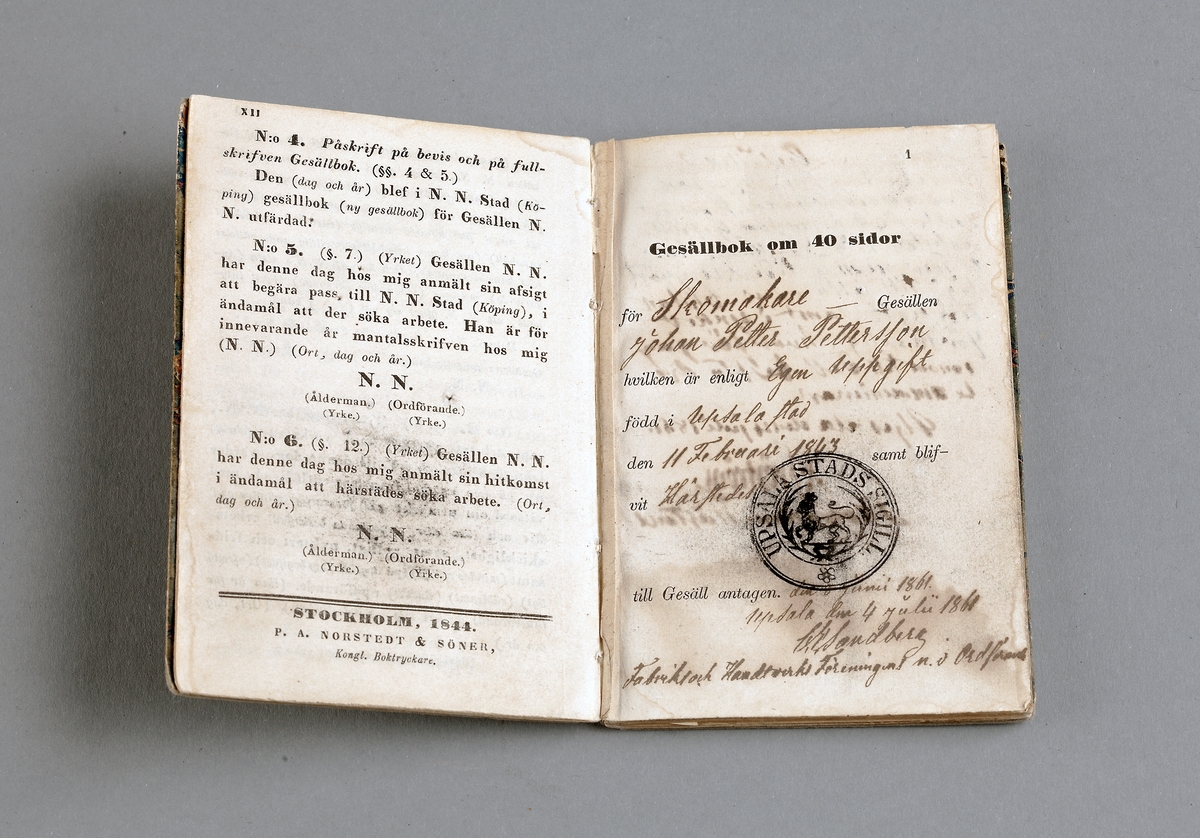 XII
N:o 4. Påskrift på bevis och på full-
skrifven Gesällbok. (§§. 4 & 5.)
Den (dag och år) blef i N. N. Stad (Kö-
ping) gesällbok (ny gesällbok) för Gesällen N.
N. utfärdad.
N:o 5. (§. 7.) (Yrket) Gesällen N. N.
har denne dag hos mig anmält sin afsigt
att begära pass, till N. N. Stad (Köping), i
ändamål att der söka arbete. Han är för
innevarande år mantalsskrifven hos mig
(N. N.) (Ort, dag och år.)
N. N.
(Ålderman.) (Ordförande.)
(Yrke.) (Yrke.)
N:o 6. (§. 12.) (Yrket) Gesällen N. N.
har denne dag hos mig anmält sin hitkomst
i ändamål att härstädes söka arbete. (Ort,
dag och år.)
N. N.
(Ålderman.) (Ordförande.)
(Yrke.) (Yrke.)
STOCKHOLM, 1844.
P. A. NORSTEDT & SÖNER,
Kongl. Boktryckare.
1
Gesällbok om 40 sidor
för Skomakare — Gesällen
Johan Petter Pettersson
hvilken är enligt Egen uppgift
född i Upsala stad
den 11 Februari samt blif-
vit Härstedes
UPSALA STADS SIGILL
till Gesäll antagen. den Junii 1861.
Upsala den 4 Julii 1861
Sandberg
Fabriks och Handtverks Föreningens n. v Ordförande